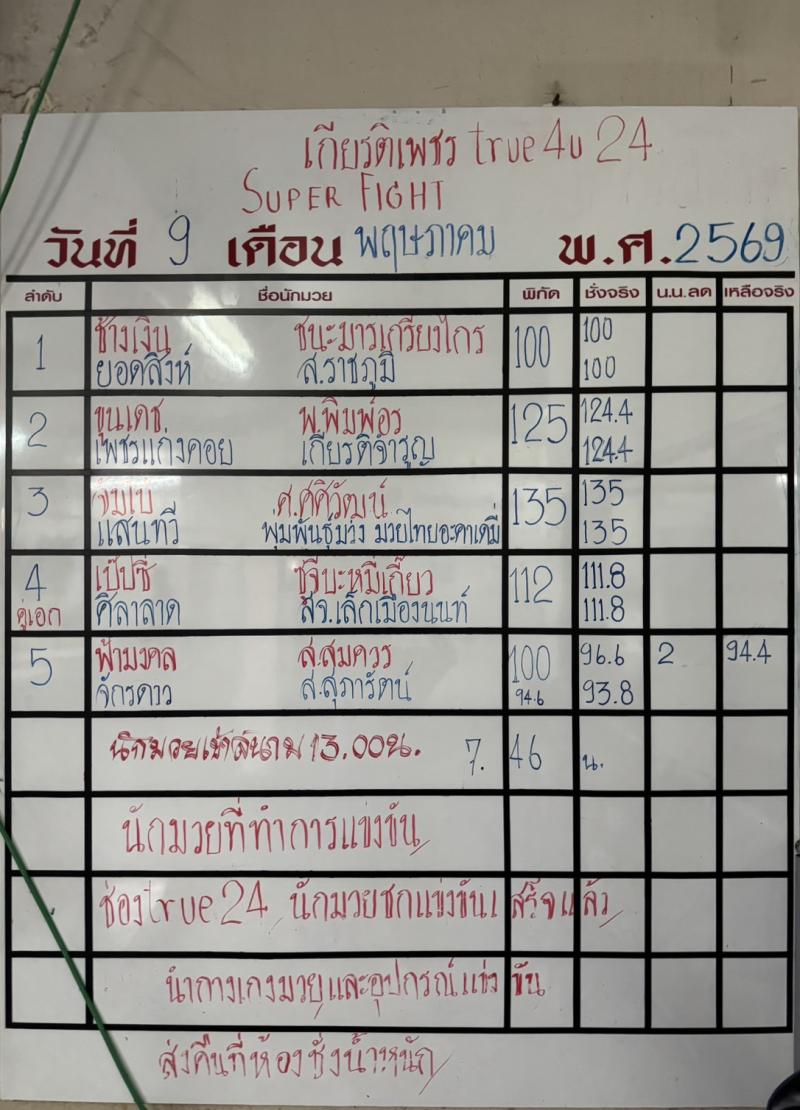 เกียรติเพชร true4u 24
SUPER FIGHT
วันที่ 9 เดือน พฤษภาคม พ.ศ. 2569
ลำดับ ชื่อนักมวย พิกัด ชั่งจริง น.น.ลด เหลือจริง
1 ช้างเงิน ชนะมารเกรียงไกร 100 100
ยอดสิงห์ ส.ราชภูมิ 100
2 ขุนเดช พ.พิมพ์อร 125 124.4
เพชรแก่งคอย เกียรติจำรูญ 124.4
3 จัมโบ้ ศ.ศศิวัฒน์ 135 135
แสนทวี พุ่มพันธุ์ม่วง มวยไทยอะคาเดมี่ 135
4 เป๊ปซี่ ชูจีบะหมี่เกี๊ยว 112 111.8
คู่เอก ศิลาลาด สจ.เล็กเมืองนนท์ 111.8
5 ฟ้ามงคล ส.สมควร 100 96.6 2 94.4
จักรดาว ส.สุภารัตน์ 94.6 93.8
นักมวยเข้าสนาม 13.00น. 7.46 น.
นักมวยที่ทำการแข่งขัน
ช่องtrue24 นักมวยชกแข่งขันเสร็จแล้ว
นำกางเกงมวยและอุปกรณ์แข่งขัน
ส่งคืนที่ห้องชั่งน้ำหนัก